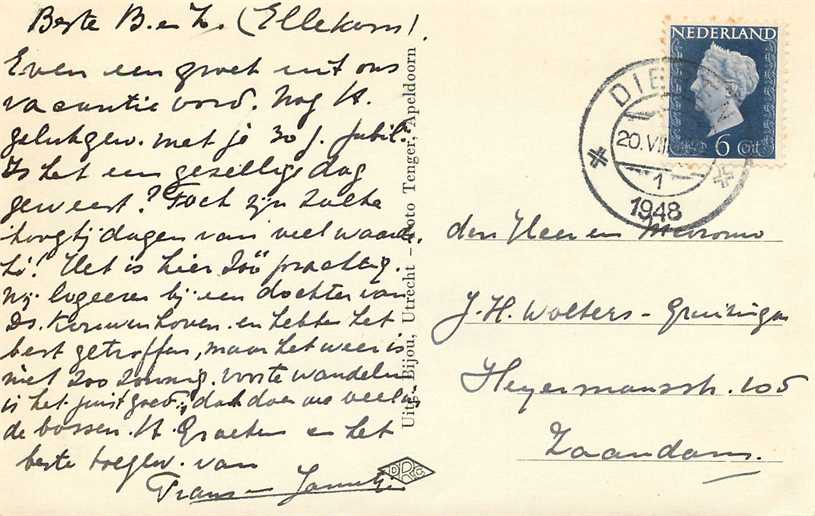 Beste B. en L. (Ellekom).
Even een groet uit ons
vacantie oord. Nog H.
gelukgew. met je 30 j. jubil.
Is het een gezellige dag
geweest? Toch zijn zulke
hoogtijdagen van veel waarde,
hè! Het is hier zóó prachtig.
Wij logeeren bij een dochter van
Ds. Kouwenhoven en hebben het
best getroffen, maar het weer is
niet zoo zonnig. Voor te wandelen
is het juist goed, dat doen we veel in
de bossen. H. Groeten en het
beste toegew. van
Frans en
Uitg. Bijou, Utrecht - Foto Tenger, Apeldoorn
DRC
NEDERLAND
6 Cnt
DIE
20.VII
1
1948
den Heer en Mevrouw
J. H. Wolters-
Heyermansstr. 105
Zaandam.